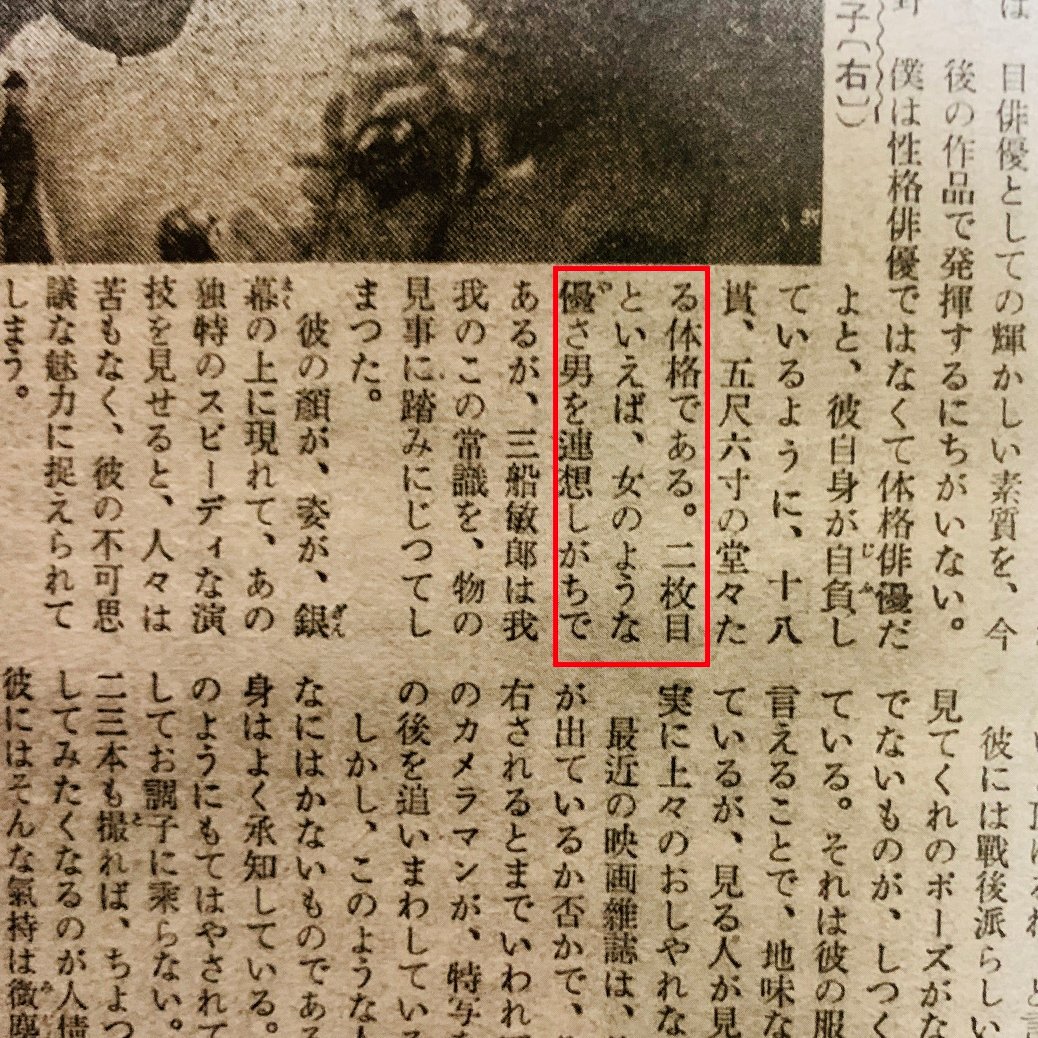 は
野
子〔右〕
目俳優としての輝かしい素質を、今
後の作品で発揮するにちがいない。
僕は性格俳優ではなくて体格俳優だ
よと、彼自身が自負し
ているように、十八
貫、五尺六寸の堂々た
る体格である。二枚目
といえば、女のような
優さ男を連想しがちで
あるが、三船敏郎は我
我のこの常識を、物の
見事に踏みにじつてし
まつた。
彼の顔が、姿が、銀
幕の上に現れて、あの
独特のスピーディな演
技を見せると、人々は
苦もなく、彼の不可思
議な魅力に捉えられて
しまう。
彼には戰後派らしい
見てくれのポーズがな
でないものが、しつく
ている。それは彼の服
言えることで、地味な
ているが、見る人が見
実に上々のおしやれな
最近の映画雑誌は、
が出ているか否かで、
右されるとまでいわれ
のカメラマンが、特写
の後を追いまわしている
しかし、このような人
なにはかないものである
身はよく承知している。
のようにもてはやされて
してお調子に乘らない。
二三本も撮れば、ちよつ
してみたくなるのが人情
彼にはそんな氣持は微塵